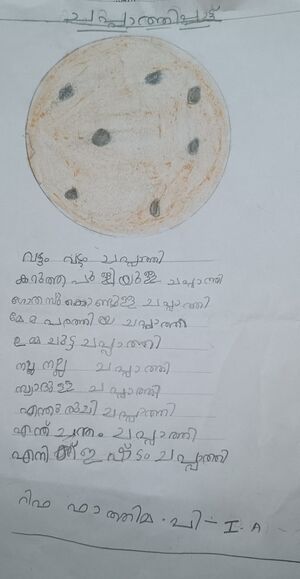 ചപ്പാത്തിപ്പാട്ട്
വട്ടം വട്ടം ചപ്പാത്തി
കറുത്ത പുള്ളിയുള്ള ചപ്പാത്തി
ഗോതമ്പുകൊണ്ടുള്ള ചപ്പാത്തി
ഉമ്മ പരത്തിയ ചപ്പാത്തി
ഉമ്മ ചുട്ട ചപ്പാത്തി
നല്ല നല്ല ചപ്പാത്തി
സ്വാദുള്ള ചപ്പാത്തി
എന്തു രുചി ചപ്പാത്തി
എന്ത് ചന്തം ചപ്പാത്തി
എനിക്ക് ഇഷ്ടം ചപ്പാത്തി
റിഫ ഫാത്തിമ. പി - I. A